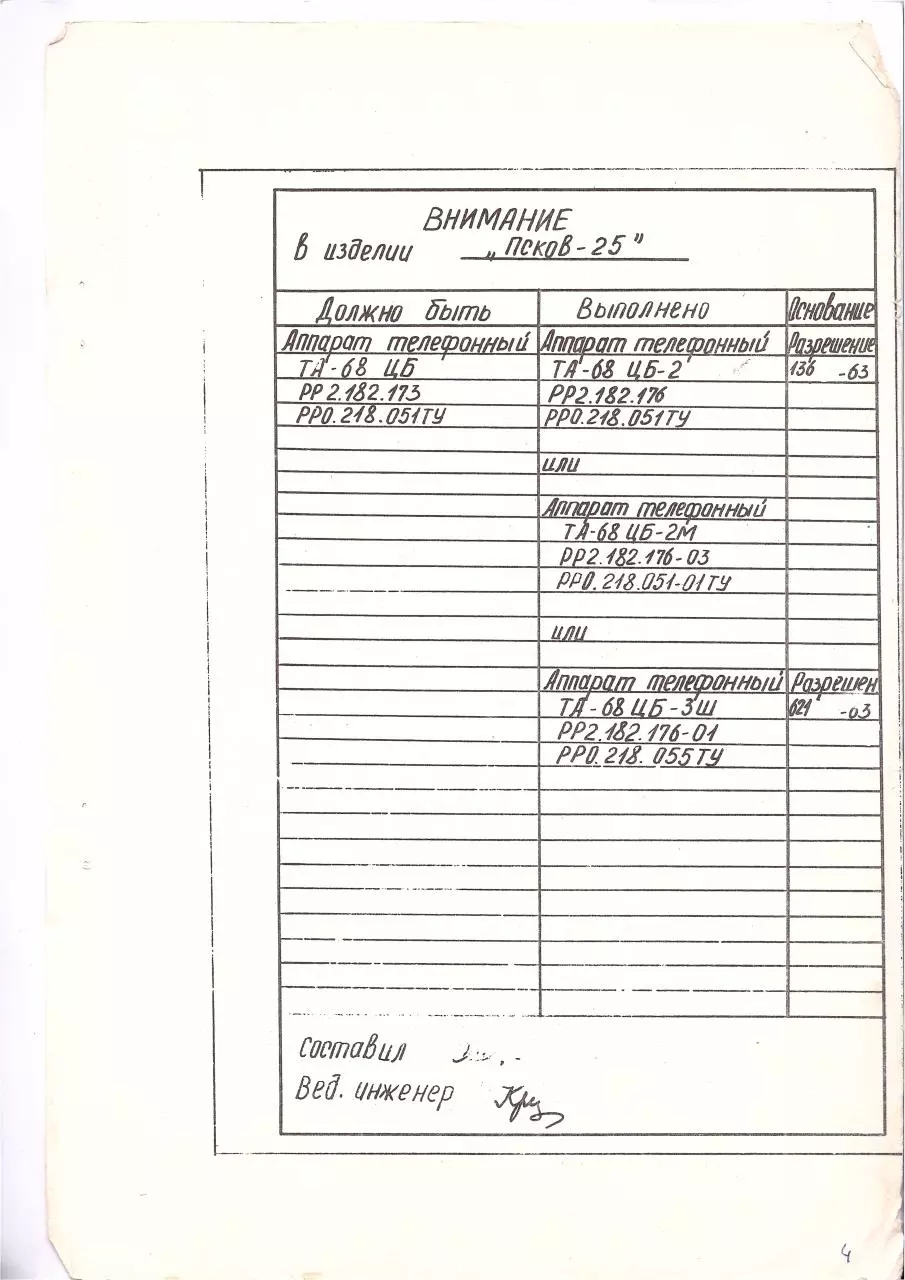 ВНИМАНИЕ
в изделии „Псков-25"
Должно быть Выполнено Основание
Аппарат телефонный Аппарат телефонный Разрешение
ТА-68 ЦБ ТА-68 ЦБ-2 136 -63
РР2.182.173 РР2.182.176
РР0.218.051ТУ РР0.218.051ТУ
или
Аппарат телефонный
ТА-68 ЦБ-2М
РР2.182.176-03
РР0.218.051-01ТУ
или
Аппарат телефонный Разрешен
ТА-68 ЦБ-3Ш 621 -03
РР2.182.176-01
РР0.218.055ТУ
Составил
Вед. инженер
4